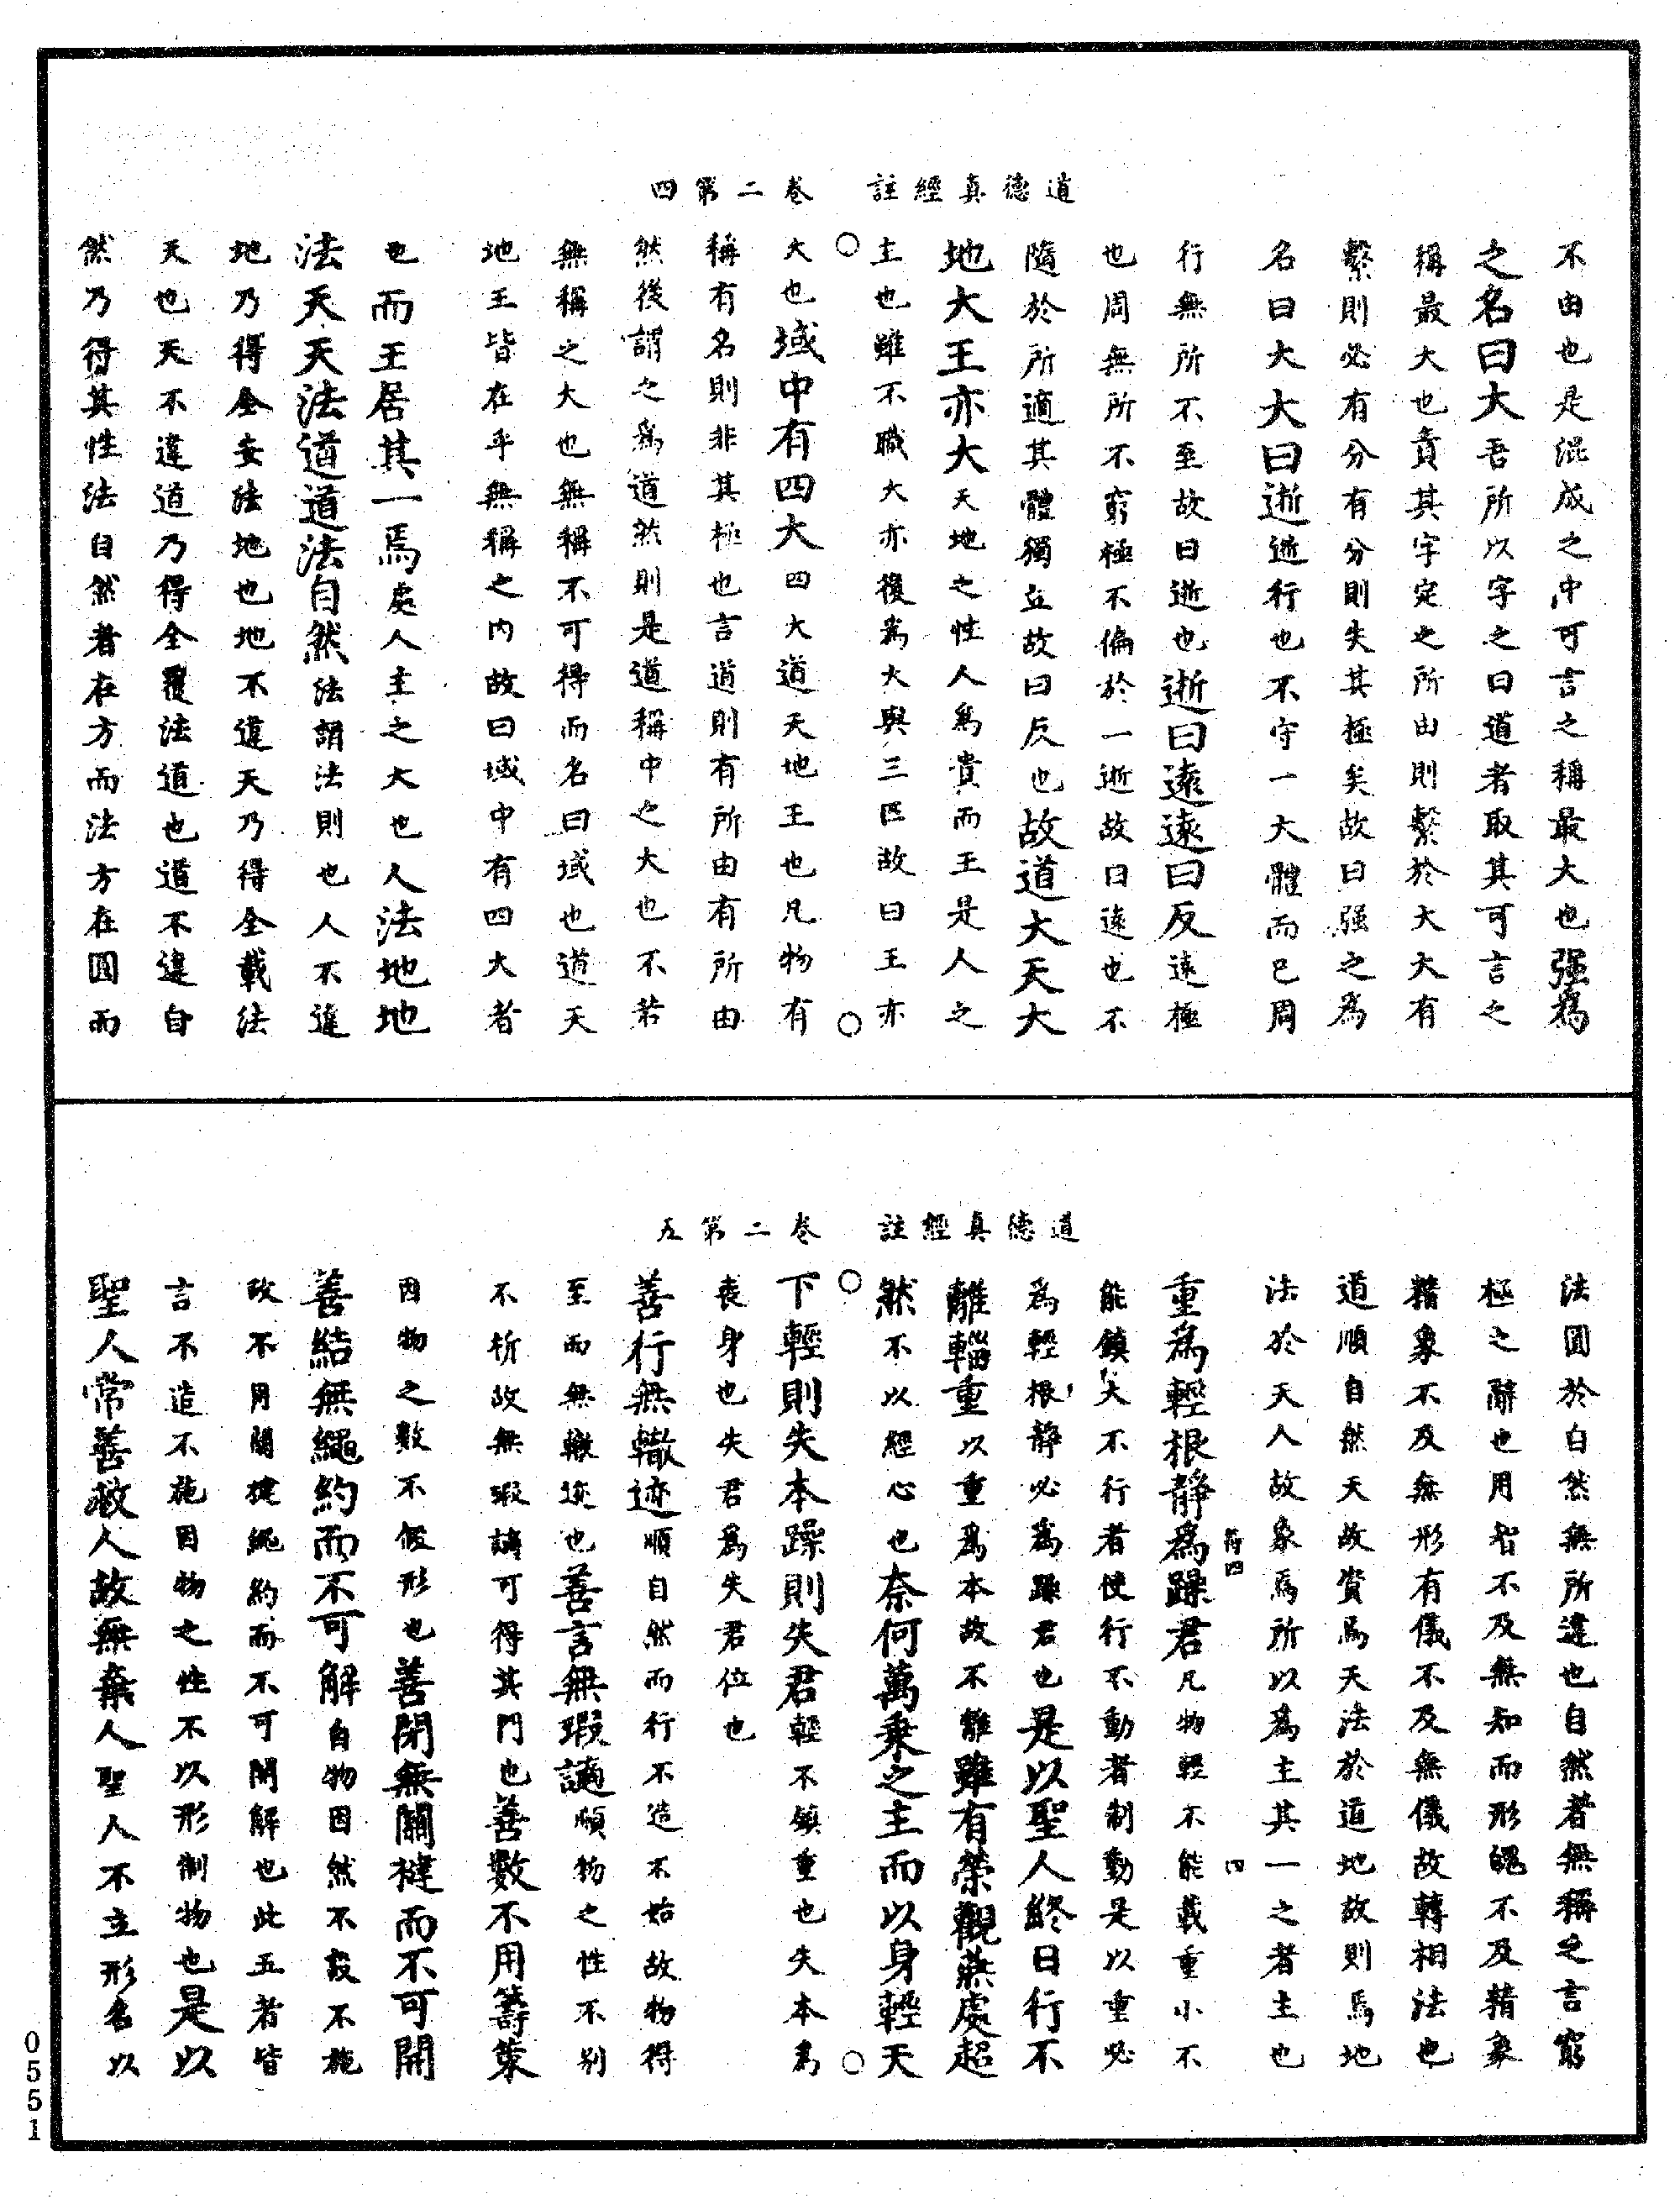 道德真經註　卷二第四
不由也是混成之中可言之稱最大也强爲
之名曰大吾所以字之曰道者取其可言之
稱最大也責其字定之所由則繫於大大有
繫則必有分有分則失其極矣故曰强之爲
名曰大大曰逝逝行也不守一大體而已周
行無所不至故曰逝也逝曰遠遠曰反遠極
也周無所不窮極不偏於一逝故曰遠也不
隨於所適其體獨立故曰反也故道大天大
地大王亦大天地之性人爲貴而王是人之
主也雖不職大亦復爲大與三匹故曰王亦
大也域中有四大四大道天地王也凡物有
稱有名則非其極也言道則有所由有所由
然後謂之爲道然則是道稱中之大也不若
無稱之大也無稱不可得而名曰域也道天
地王皆在乎無稱之內故曰域中有四大者
也而王居其一焉處人主之大也人法地地
法天天法道道法自然法謂法則也人不違
地乃得全安法地也地不違天乃得全載法
天也天不違道乃得全覆法道也道不違自
然乃得其性法自然者在方而法方在圓而
道德真經註　卷二第五
法圓於自然無所違也自然者無稱之言窮
極之辭也用智不及無知而形魄不及精象
精象不及無形有儀不及無儀故轉相法也
道順自然天故資焉天法於道地故則焉地
法於天人故象焉所以爲主其一之者主也
符四　四
重爲輕根静爲躁君凡物輕不能載重小不
能鎮大不行者使行不動者制動是以重必
爲輕根静必爲躁君也是以聖人終日行不
離輜重以重爲本故不離雖有榮觀燕處超
然不以經心也奈何萬乘之主而以身輕天
下輕則失本躁則失君輕不鎮重也失本爲
喪身也失君爲失君位也
善行無轍迹順自然而行不造不始故物得
至而無轍迹也善言無瑕讁順物之性不别
不析故無瑕讁可得其門也善數不用籌策
因物之數不假形也善閉無關楗而不可開
善結無繩約而不可解自物因然不設不施
故不用關楗繩約而不可開解也此五者皆
言不造不施因物之性不以形制物也是以
聖人常善救人故無棄人聖人不立形名以
0551